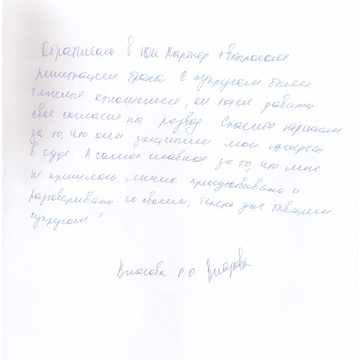 Обратилась в Юк Партнер с вопросом
расторжения брака. С супругом были
тяжелые отношения, он не давать
свое согласие на развод. Спасибо юристам
за то, что они защитили мои интересы
в суде. А самое главное за то, что мне
не пришлось лично присутствовать и
разговаривать со своим, теперь уже бывшим
супругом!
Власова П.О.